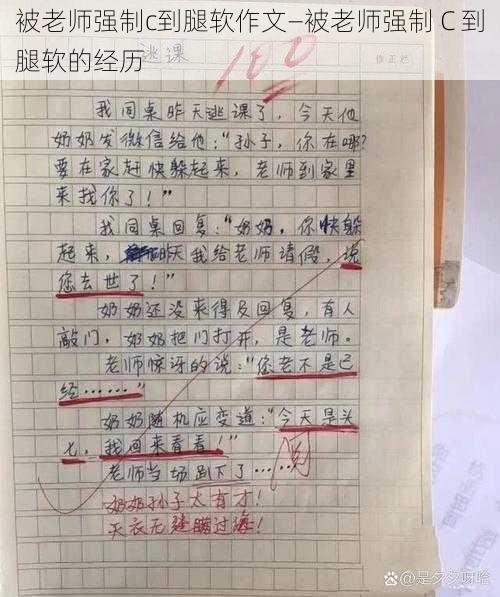 被老师强制c到腿软作文—被老师强制 C 到
腿软的经历
逃课
100
修正栏
我同桌昨天逃课了，今天他
奶奶发微信给他："孙子，你在哪?
要在家赶快躲起来，老师到家里
来找你了！"
我同桌回复："奶奶，你快躲
起来，昨天我给老师请假，说
您去世了！"
奶奶还没来得及回复，有人
敲门，奶奶把门打开，是老师。
老师惊讶的说："您老不是已
经……"
奶奶随机应变道："今天是头
七，我回来看看！"
老师当场跪下了……
奶奶孙子太有才！
天衣无缝瞒过海！
@是夕夕呀哈